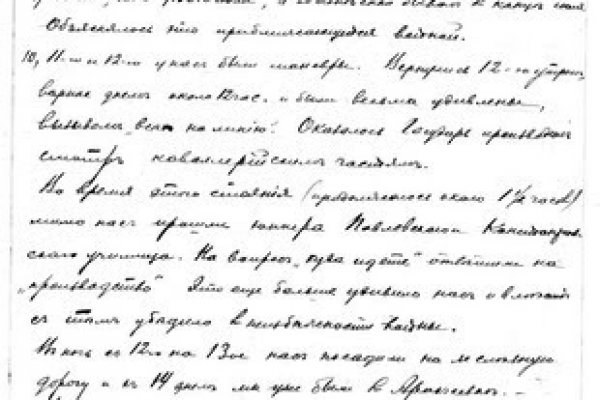 Объяснялось это приближающейся войной.
10, 11-го и 12-го у нас были маневры. Вернулись 12-го утром,
вернее днем около 12 час. и были весьма удивлены,
вызовом „всех на линию". Оказалось Государь производит
смотр кавалерийским частям.
Во время этого стояния (продолжалось около 1½ часов)
мимо нас прошли юнкера Павловского Константинов-
ского училища. На вопрос „куда идете" ответили на
„производство" Это еще больше удивило нас и вместе
с тем убедило в неизбежности войны.
В ночь с 12-го на 13-ое нас посадили на железную
дорогу и 14 днем мы уже были в